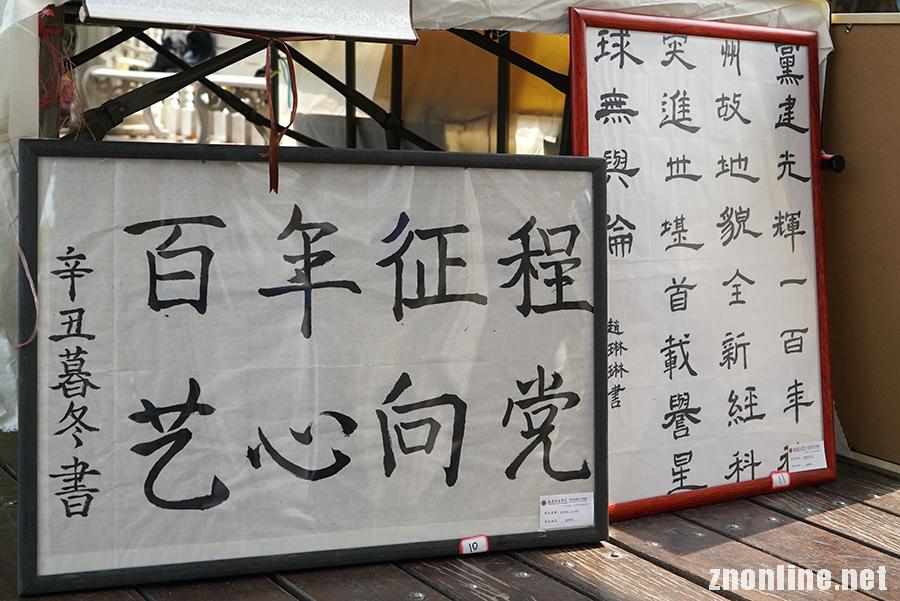 百年征程
艺心向党
辛丑暮冬書
10
黨建光輝一百年
州故地貌全新經科
突進世堪首載譽星
球無與倫
趙琳琳書
11
znonline.net